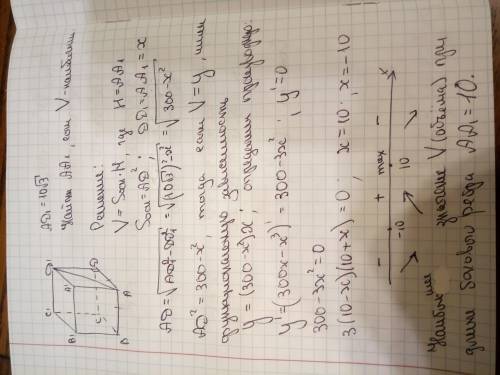 AD₁=10√3
Найти AA₁, если V-наибольший
Решение:
V=Sосн·H, где H=AA₁
Sосн=AD²; DD₁=AA₁=x
AD=√(AD₁²-DD₁²)=√((10√3)²-x²)=√(300-x²)
AD²=300-x², тогда если V=y, имеем
функциональную зависимость
y=(300-x²)x; определим производную:
y'=(300x-x³)'=300-3x²; y'=0
300-3x²=0
3(10-x)(10+x)=0; x=10; x=-10
- + max -
-10 10 x
Наибольшее значение V (объёма) при
длине бокового ребра AA₁=10.
B₁ C₁ D₁ A₁
B C D A